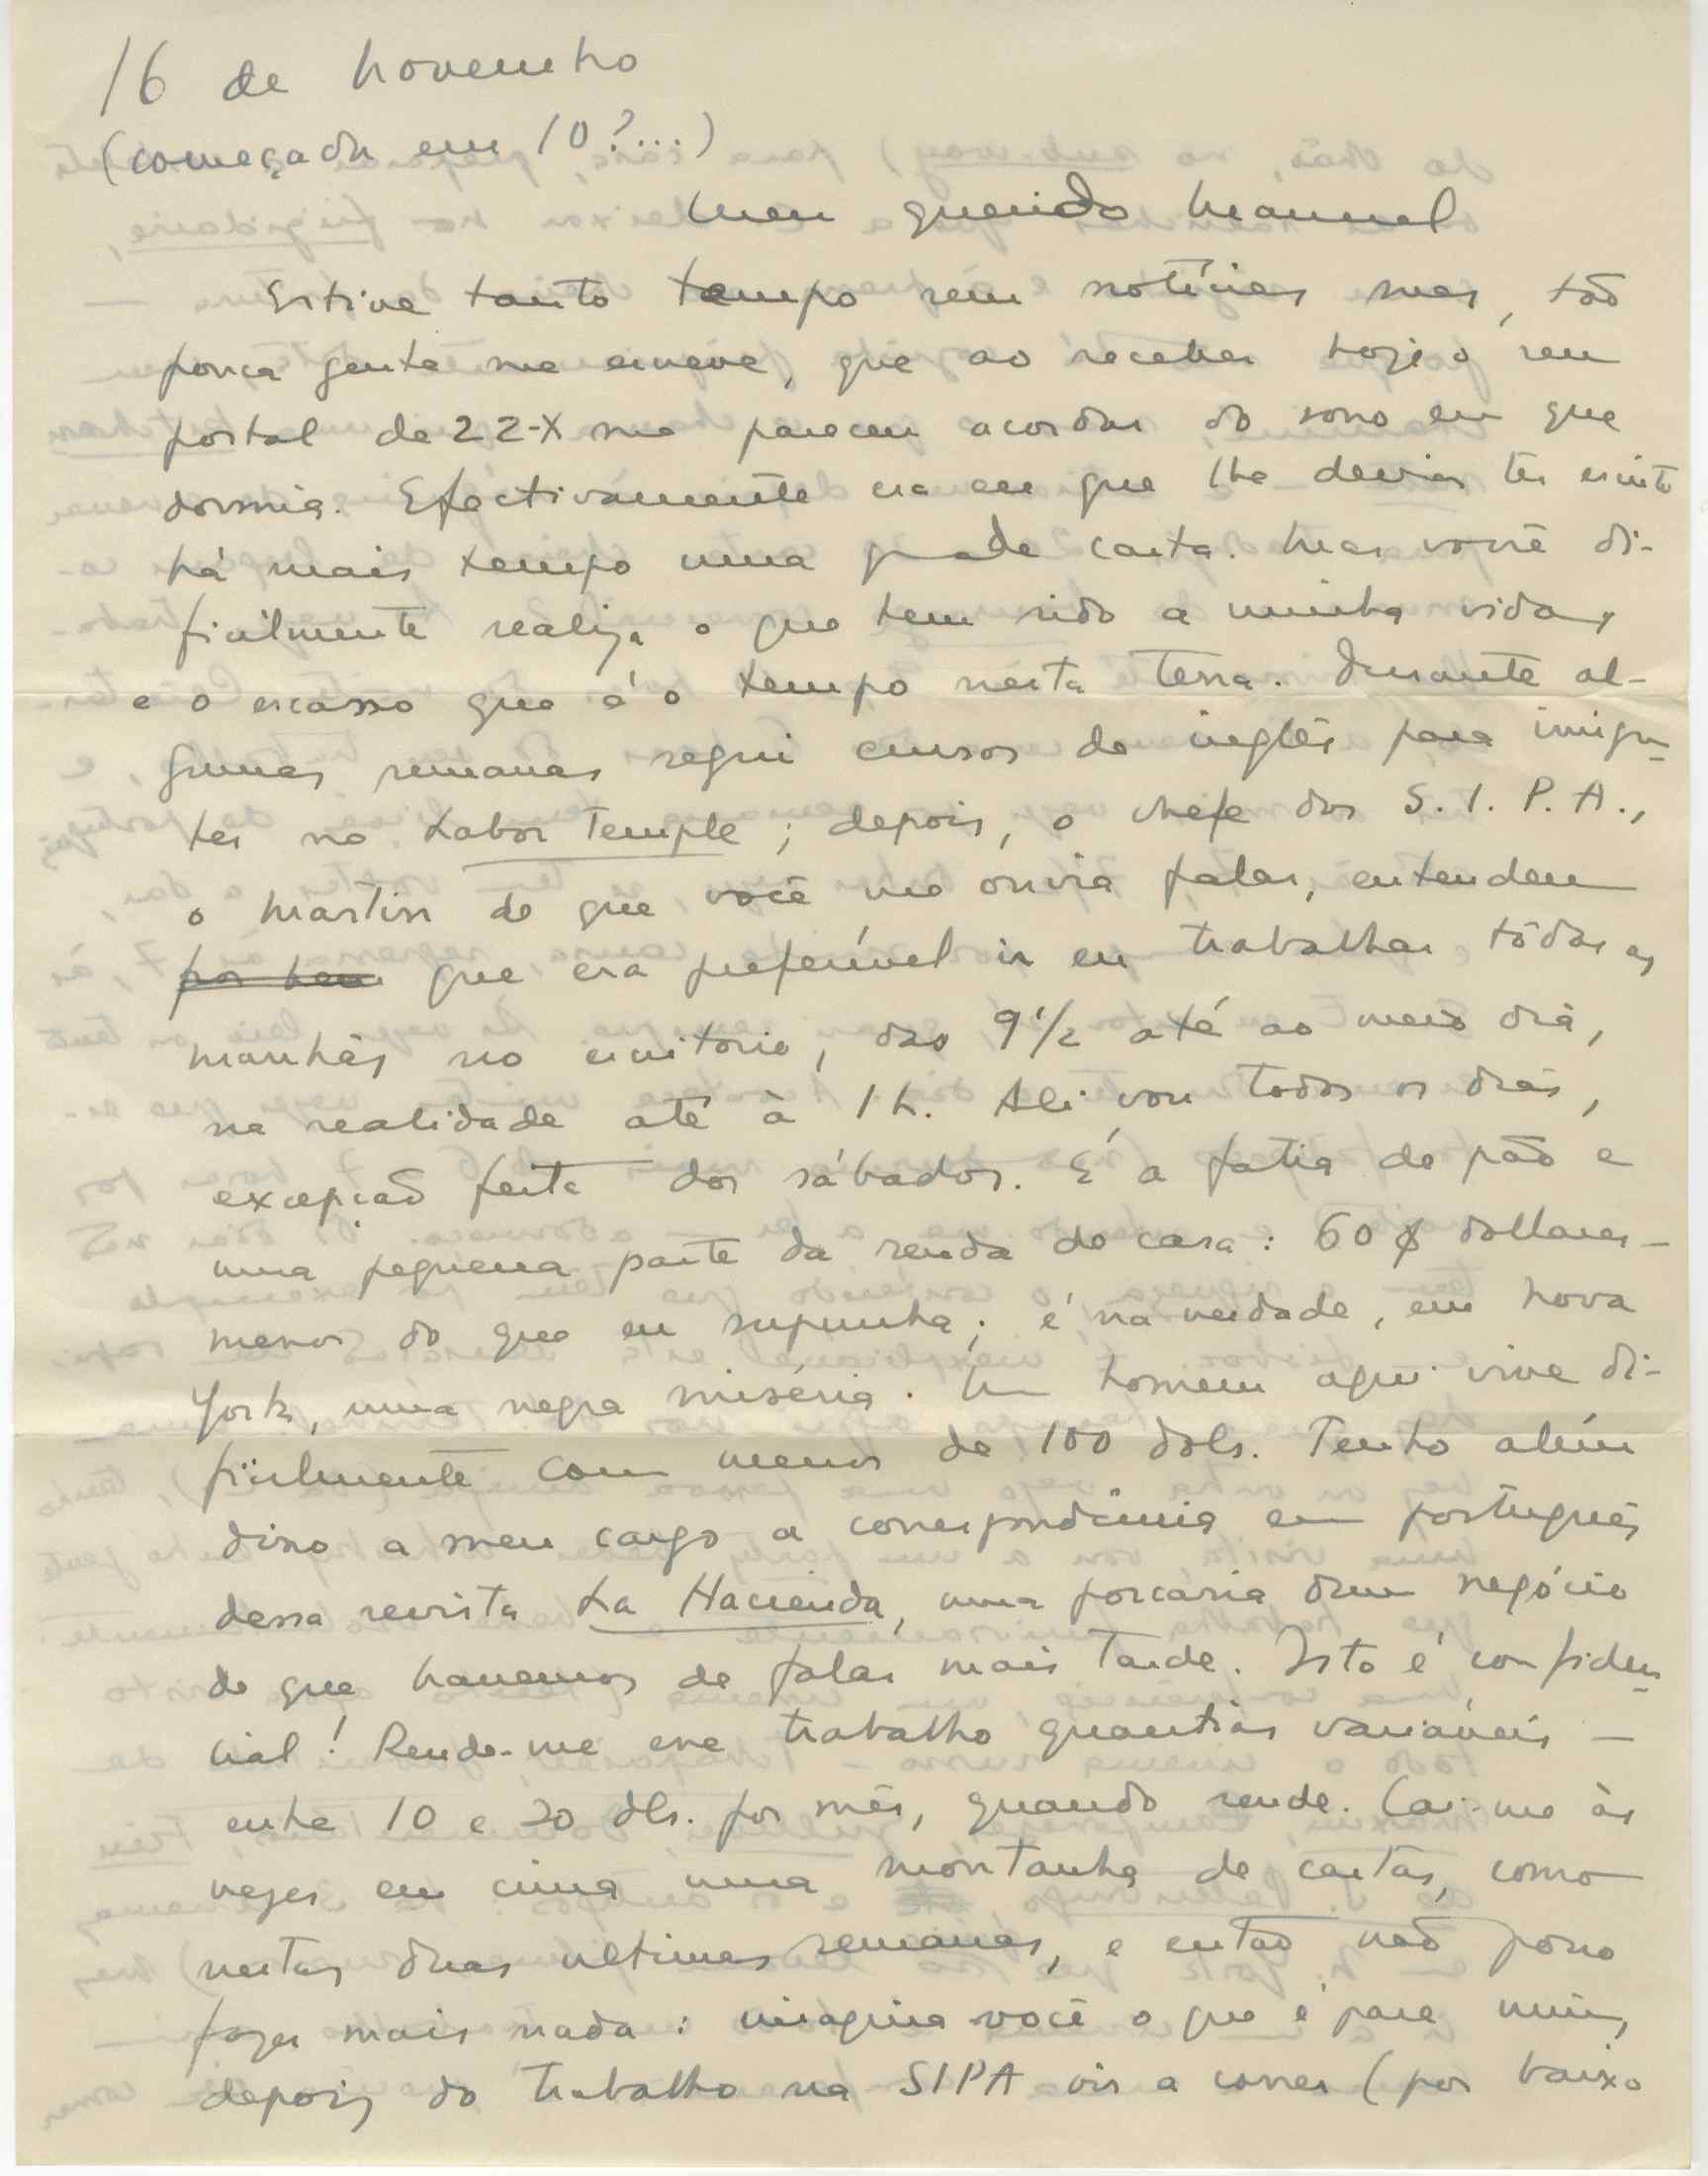 16 de Novembro
(começada em 10?...)
Meu querido Manuel
Estive tanto tempo sem notícias suas, tão
pouca gente me escreve, que ao receber hoje o seu
postal de 22-X me pareceu acordar do sono em que
dormia. Efectivamente era eu que lhe devia ter escrito
há mais tempo uma grande carta. Mas você di-
ficilmente realiza o que tem sido a minha vida,
e o escasso que é o tempo nesta terra. Durante al-
gumas semanas segui cursos de inglês para imigran-
tes no Labor Temple; depois, o chefe dos S.I.P.A.,
o Martin de que você me ouvia falar, entendeu
que era preferível ir eu trabalhar tôdas as
manhãs no escritório, das 9 1/2 até ao meio dia,
na realidade até à 1 h. Ali vou todos os dias,
excepção feita dos sábados. É a fatia de pão e
uma pequena parte da renda de casa: 60 $ dollares -
menos do que eu supunha; é na verdade, em Nova
York, uma negra miséria. Um homem aqui vive di-
ficilmente com menos de 100 dols. Tenho além
disso a meu cargo a correspondência em português
dessa revista La Hacienda, uma porcaria dum negócio
de que havemos de falar mais tarde. Isto é confiden-
cial! Rende-me esse trabalho quantias variáveis —
entre 10 e 20 dls. por mês, quando rende. Cai-me às
vezes em cima uma montanha de cartas, como
nestas duas ultimas semanas, e então não posso
fazer mais nada: imagina você o que é para mim,
depois do trabalho na SIPA vir a correr (por baixo